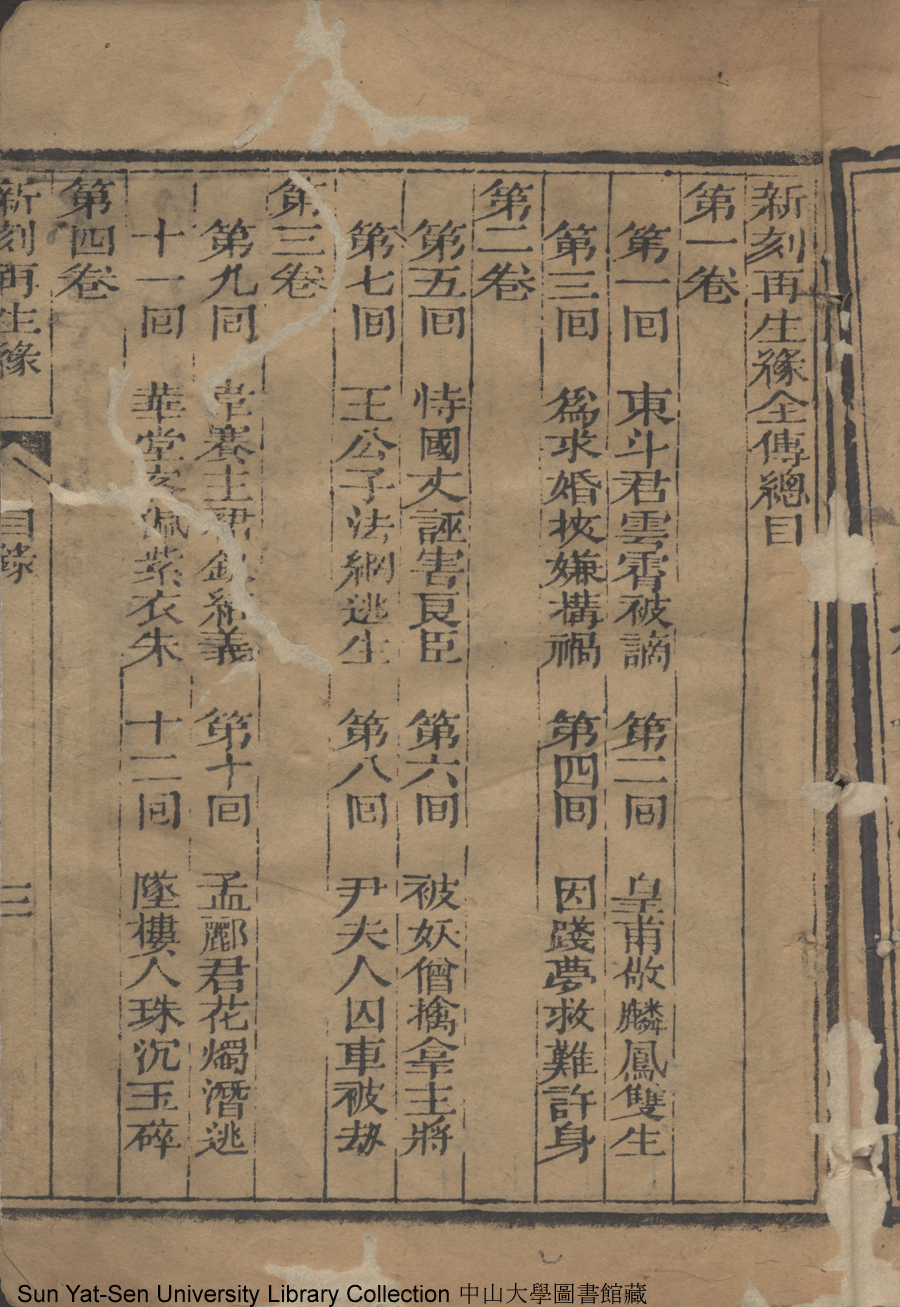 新刻再生緣全傳總目
第一卷
第一回 東斗君雲霄被謫 第二回 皇甫敬麟鳳雙生
第三回 爲求婚挾嫌搆禍 第四回 因踐夢救難許身
第二卷
第五回 恃國丈誣害良臣 第六回 被妖僧擒拿主將
第七回 王公子法網逃生 第八回 尹夫人囚車被劫
第三卷
第九回 韋寨主 結義 第十回 孟酈君花燭潛逃
十一回 華堂 紫衣朱 十二回 墜樓人珠沉玉碎
第四卷
新刻再生緣 目錄 三
Sun Yat-Sen University Library Collection 中山大學圖書館藏